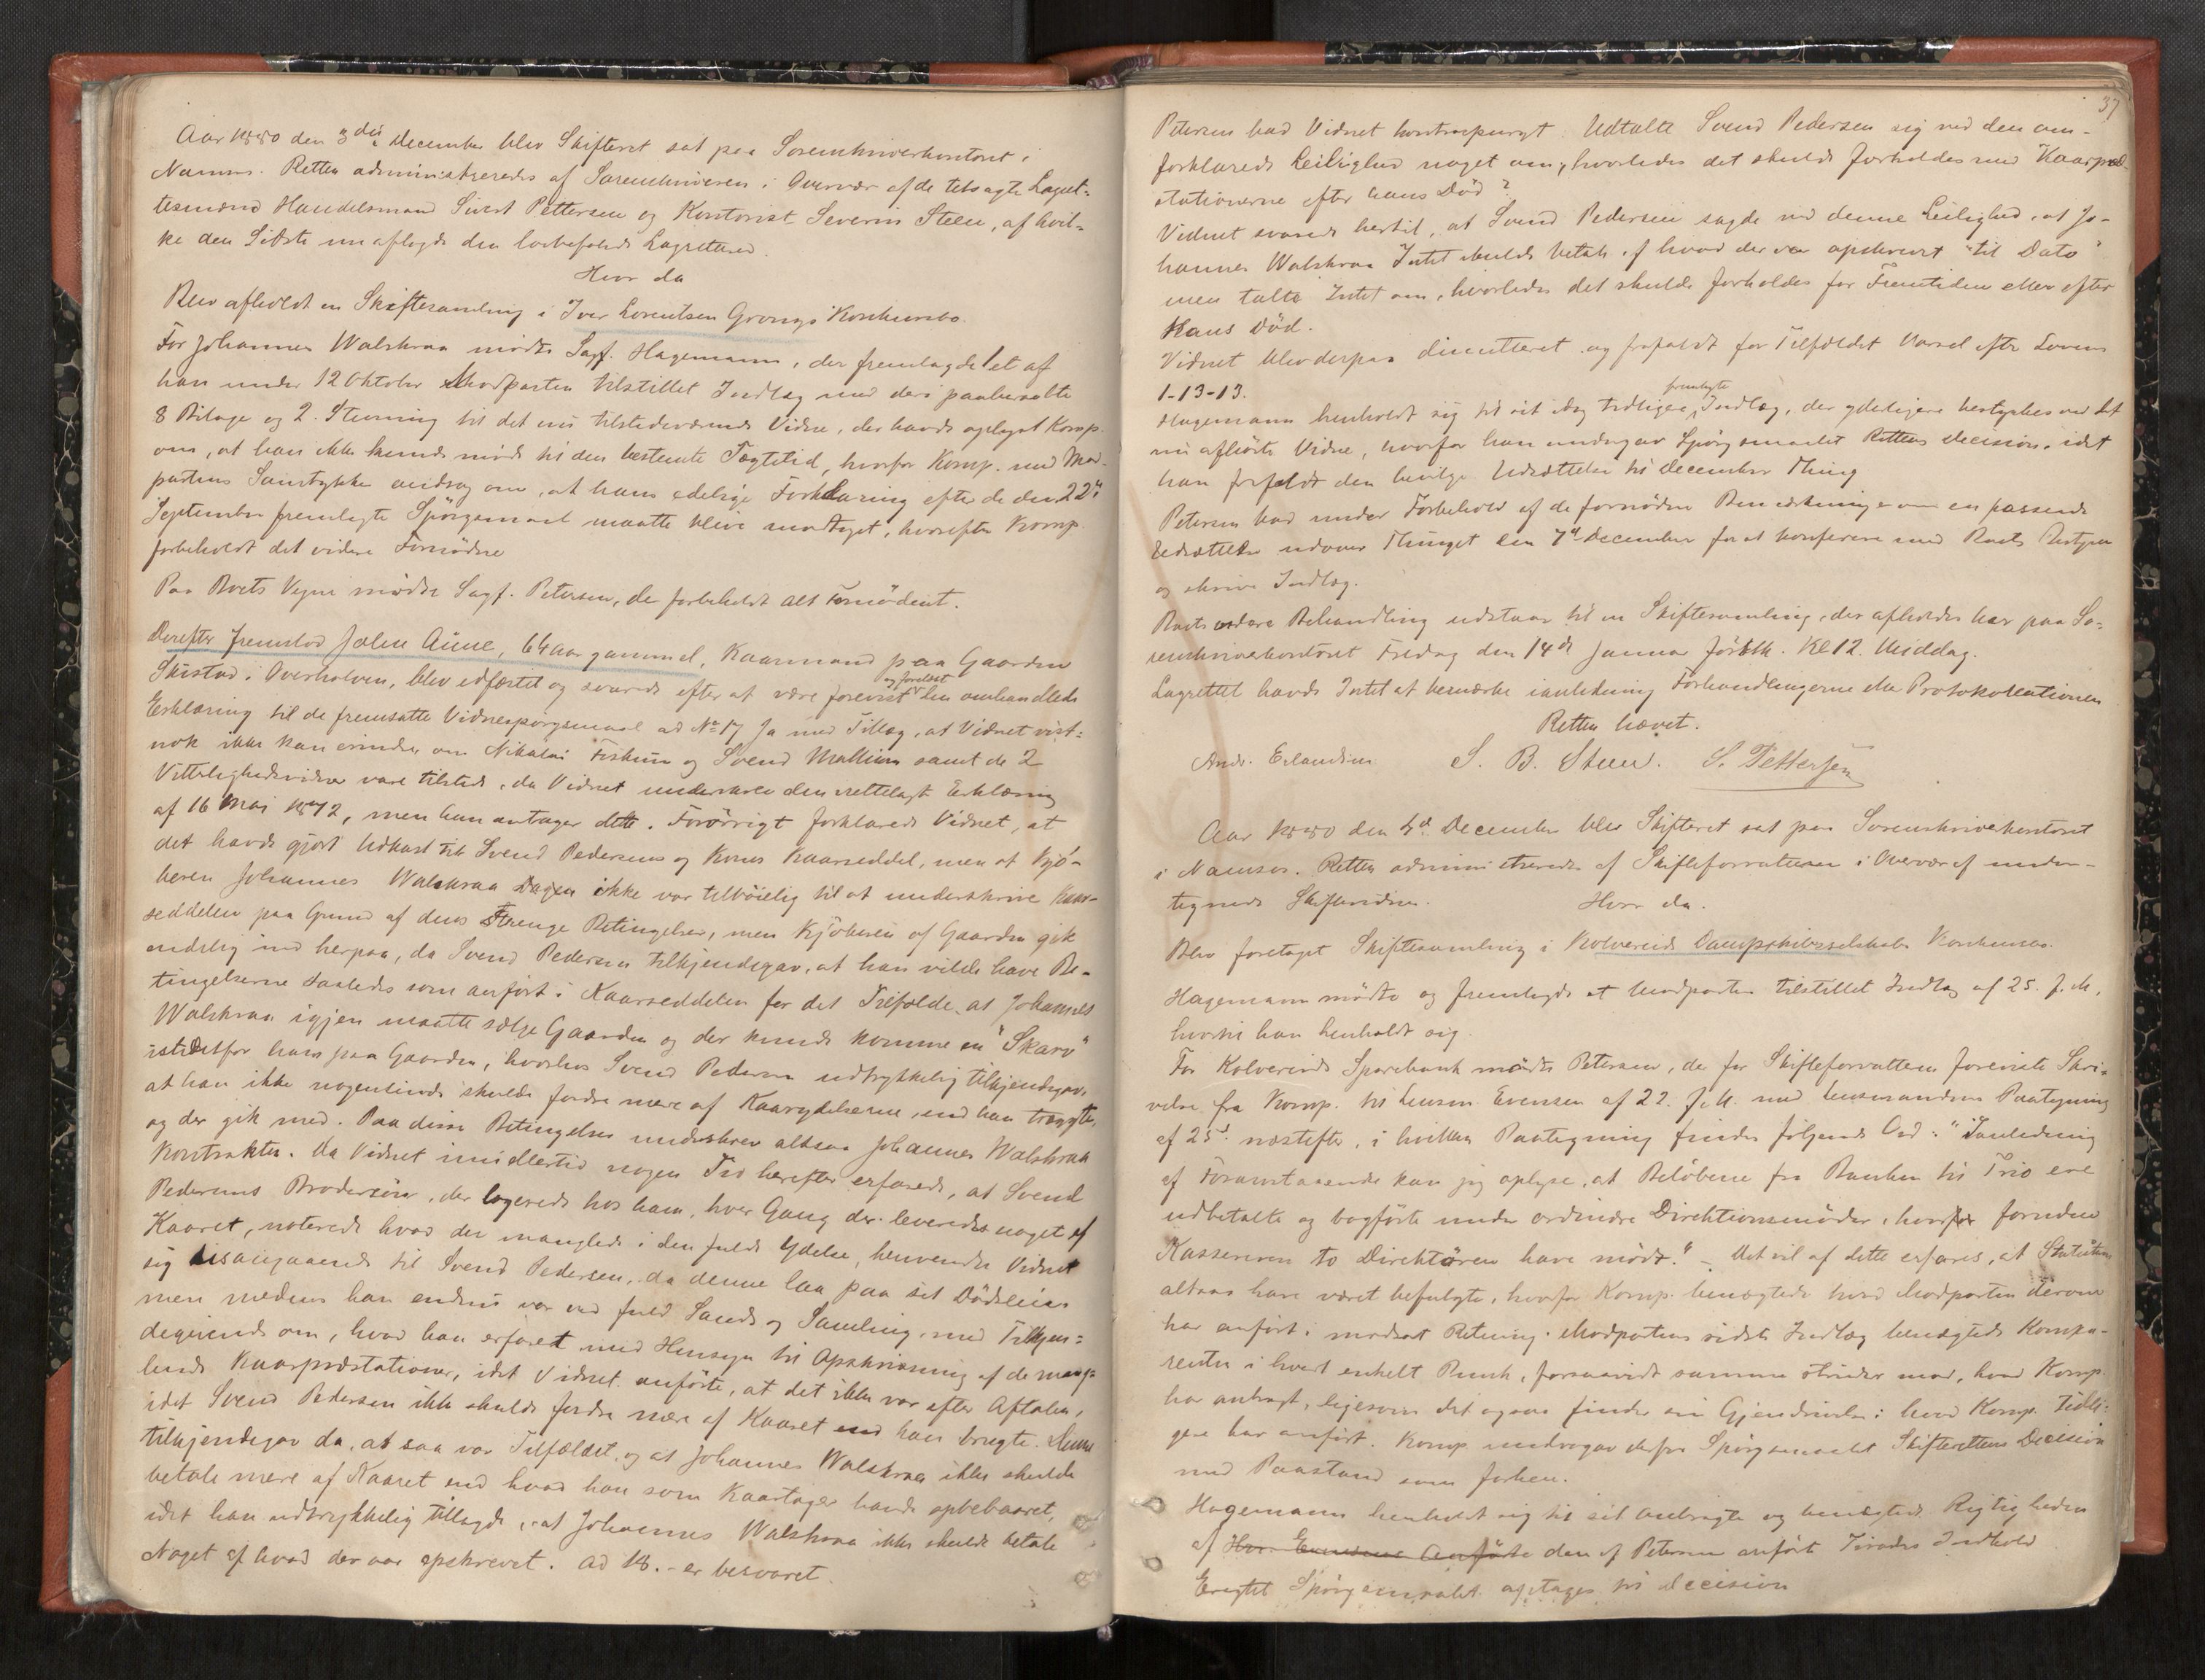 Aar 1880 den 3die December blev Skifteret sat paa Sorenskriverkontoret i
Namsos. Retten administreredes af Sorenskriveren i Overvær af de tilsagte Lagret-
tesmænd Handelsmand Sivert Pettersen og Kontorist Severin Steen, af hvil-
ke den Sidste nu aflagde den lovbefalede Lagretteed.
Hvor da
Blev afholdt en Skiftesamling i Iver Lorentsen Grongs Konkursbo.
For Johannes Walskraa mødte Sagf. Hagemann, der fremlagde 1 et af
han under 12 Oktober Modparten tilstillet Indlæg med deri paaberaabte
8 Bilage og 2. Stevning til det nu tilstedeværende Vidne, der havde oplyst Komp.
om, at han ikke kunde møde til den bestemte Tægtetid, hvorfor Komp. med Mod-
partens Samtykke androg om, at hans edelige Forklaring efter de den 22de
September fremlagte Spørgsmaal maatte blive modtaget, hvorefter Komp.
forbeholdt det videre Fornødne
Paa Boets Vegne mødte Sagf. Petersen, der forbeholdt alt Fornødent.
Derefter fremstod John Aune, 64 aar gammel, Kaarmand paa Gaarden
Skistad i Overhalven, blev edfæstet og svarede efter at være forevist og forelæst den omhandlede
Erklæring til de fremsatte Vidnespørgsmaal ad No 17 Ja med Tillæg, at Vidnet vist-
nok ikke kan erindre om Nikolai Fiskum og Svend Mallium samt de 2
Vitterlighedsvidner vare tilstede, da Vidnet underskrev den rettelagte Erklæring
af 16 Mai 1872, men han antager dette. Forøvrigt forklarede Vidnet, at
det havde gjort Udkast til Svend Pedersens og Kones Kaarseddel, men at Kjø-
beren Johannes Walskraa Dagen ikke var tilbøielig til at underskrive Kaar-
seddelen paa Grund af dens strenge Betingelser, men Kjøberen af Gaarden gik
endelig ind herpaa, da Svend Pedersen tilkjendegav, at han vilde have Be-
tingelserne saaledes som anført i Kaarseddelen for det Tilfælde, at Johannes
Walskraa igjen maatte sælge Gaarden og der kunde komme en "Skarv"
istedetfor ham paa Gaarden, hvorhos Svend Pedersen udtrykkelig tilkjendegav,
at han ikke nogensinde skulde fordre mere af Kaarydelserne, end han trængte,
og der gik med. Paa disse Betingelser underskrev altsaa Johannes Walskraa
Kontrakten. Da Vidnet imidlertid nogen Tid herefter erfarede, at Svend
Pedersens Brodersøn, der logerede hos ham, hver Gang der leveredes noget af
Kaaret, noterede hvad der manglede i den fulde Ydelse, henvendte Vidnet
sig desangaaende til Svend Pedersen, da denne laa paa sit Dødsleie,
men medens han endnu var ved fuld Sands og Samling, med Tilkjen-
degivende om, hvad han erfaret med Hensyn til Opskrivning af de mang-
lende Kaarpræstationer, idet Vidnet anførte, at det ikke var efter Aftalen,
idet Svend Pedersen ikke skulde fordre mere af Kaaret end han brugte. Denne
tilkjendegav da, at saa var Tilfældet, og at Johannes Walskraa ikke skulde
betale mere af Kaaret end hvad han som Kaartager havde opbebaaret,
idet han udtrykkelig tillagde, at Johannes Walskraa ikke skulde betale
Noget af hvad der var opskrevet. Ad 18. - er besvaret.
37
Petersen bad Vidnet kontraspurgt: Udtalte Svend Pedersen sig ved den om-
forklarede Leilighed noget om, hvorledes det skulde forholdes med Kaarpræ-
stationerne efter hans Død?
Vidnet svarede hertil, at Svend Pedersen sagde ved denne Leilighed, at Jo-
hannes Walskraa Intet skulde betale af hvad der var opskrevet "til Dato"
men talte Intet om, hvorledes det skulde forholdes for Fremtiden eller efter
Hans Død.
Vidnet blev derpaa dimitteret og frafaldt for Tilfældet Varsel efter Lovens
1-13-13.
Hagemann henholdt sig til sit idag tidligere fremlagte Indlæg, der yderligere bestyrkes ved det
nu afhørte Vidne, hvorfor han undergav Spørgsmaalet Rettens Decision, idet
han frafaldt den bevilgede Udsættelse til December Thing
Petersen bad under Forbehold af de fornødne Bemærkninger om en passende
Udsættelse udover Thinget den 7de December for at konferere med Boets Bestyrer
og skrive Indlæg.
Boets videre Behandling udstaar til en Skiftesamling, der afholdes her paa So-
renskriverkontoret Fredag den 14de Januar førstk. Kl 12 Middag.
Lagrettet havde Intet at bemærke i anledning Forhandlingerne eller Protokolationen
Retten hævet.
Andr. Erlandsen S. B. Steen. S. Pettersen
Aar 1880 den 4de December blev Skifteret sat paa Sorenskriverkontoret
i Namsos. Retten administreredes af Skifteforvalteren i Overvær af under-
tegnede Skiftevidner. Hvor da.
Blev foretaget Skiftesamling i Kolvereids Dampskibsselskabs Konkursbo.
Hagemann mødte og fremlagde et Modparten tilstillet Indlæg af 25. f. M.
hvortil han henholdt sig.
For Kolvereids Sparebank mødte Petersen, der for Skifteforvalteren foreviste Skri-
velse fra Komp. til Lensm. Evensen af 22. f. M. med Lensmandens Paategning
af 25de næstefter, i hvilken Paategning findes følgende Ord: "I anledning
af Foranstaaende kan jeg oplyse, at Beløbene fra Banken til Trio ere
udbetalte og bogførte under ordinære Direktionsmøder, hvorfor foruden
Kassereren to Direktører have mødt." - Det vil af dette erfares, at Statuterne
altsaa have været befulgte, hvorfor Komp. benægtede hvad Modparten derom
har anført i modsat Retning. Modpartens sidste Indlæg benægtede Kompa-
renten i hvert enkelt Punkt, forsaavidt samme strider mod, hvad Komp.
har anbragt, ligesom det ogsaa finder sin Gjendrivelse i hvad Komp. tidli-
gere har anført. Komp. undergav derfor Spørgsmaalet Skifterettens Decision
med Paastand som forhen.
Hagemann henholdt sig til sit Anbragte og benægtede Rigtigheden
af den af Petersen anførte Tirades Indhold
Eragtet Spørgsmaalet optages til Decision